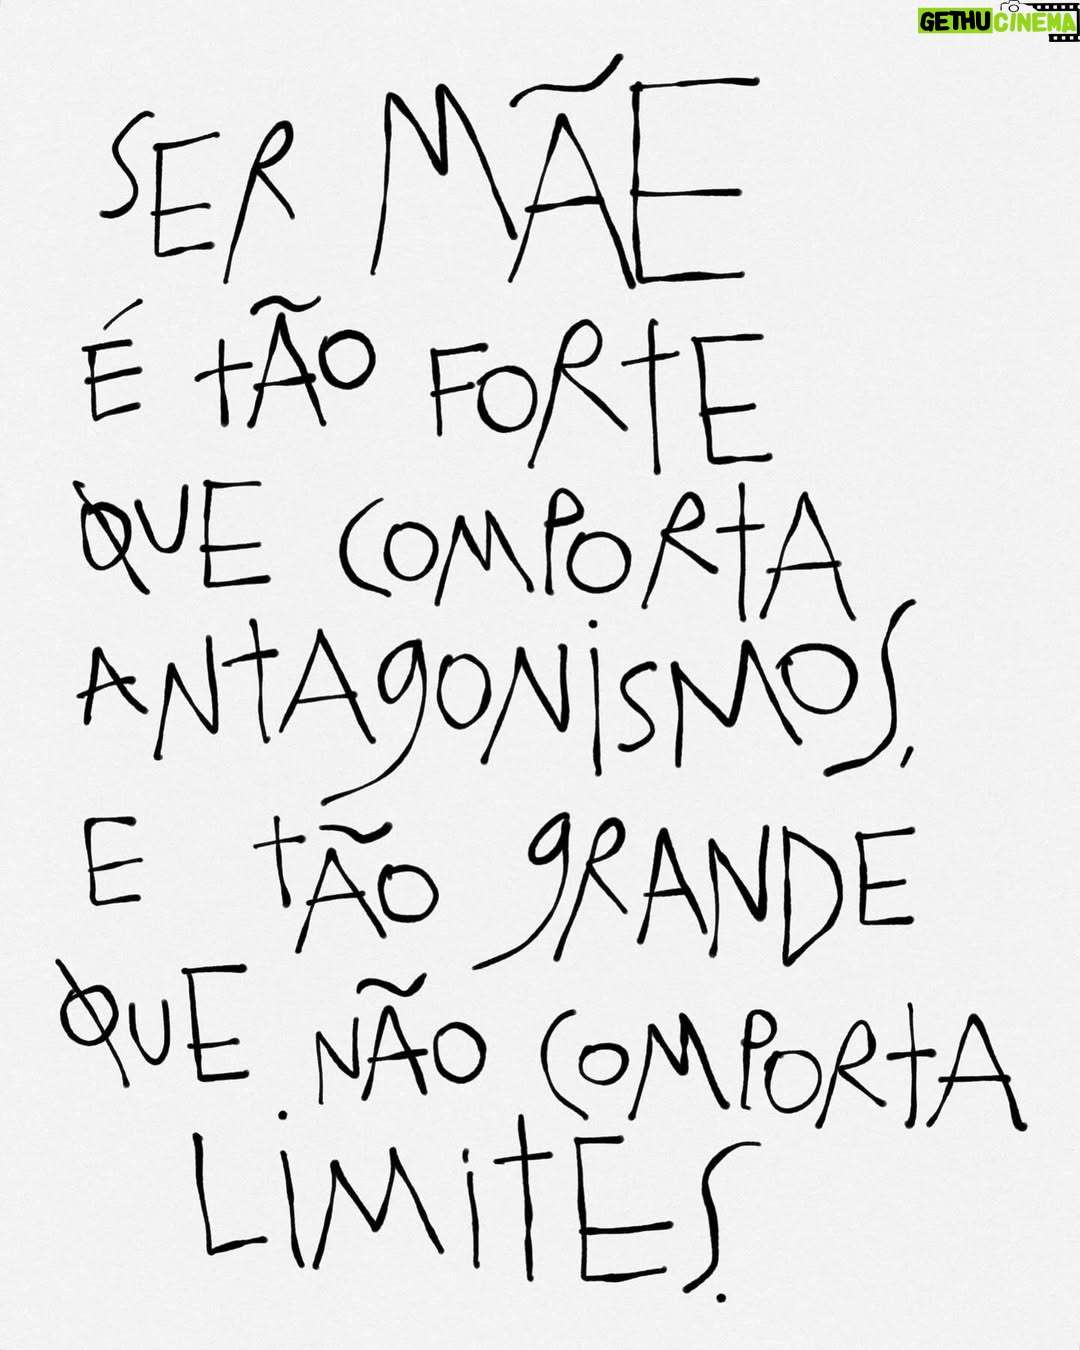 GETHUCINEMA
SER MÃE
É tÃO FORtE
QUE COMPORtA
ANtAgONiSMOS,
E tÃO gRANDE
QUE NÃO COMPORtA
LiMitES.